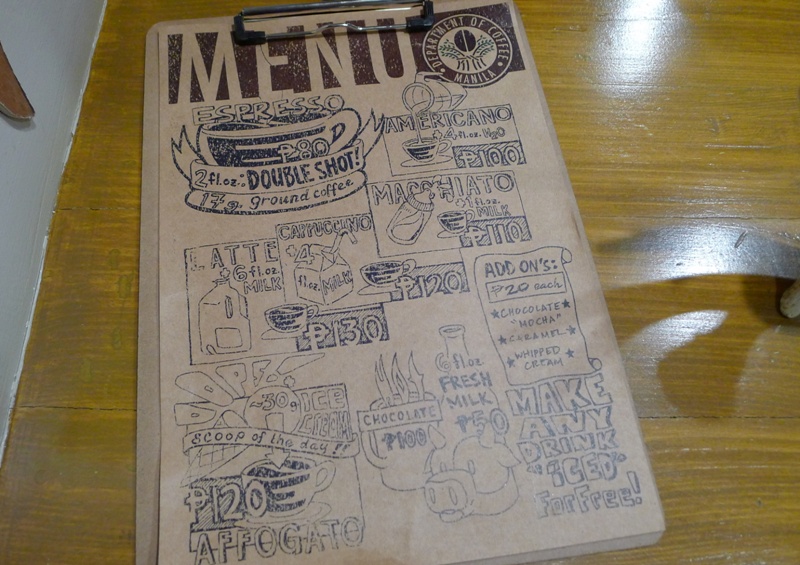 MENU
DEPARTMENT OF COFFEE
MANILA
ESPRESSO
₱80
2 fl.oz.: DOUBLE SHOT!
17g. ground coffee
AMERICANO
+4 fl.oz. H₂O
₱100
MACCHIATO
+1 fl.oz.
MILK
₱110
CAPPUCCINO
+4
fl.oz. MILK
₱120
LATTE
+6 fl.oz.
MILK
₱130
ADD ON'S:
₱20 each
★CHOCOLATE★
"MOCHA"
★CARAMEL★
★WHIPPED★
CREAM
~30g ICE
CREAM
scoop of the day!!
₱120
AFFOGATO
CHOCOLATE
₱100
6 fl.oz
FRESH
MILK
₱50
MAKE
ANY
DRINK
"iCED"
For Free!